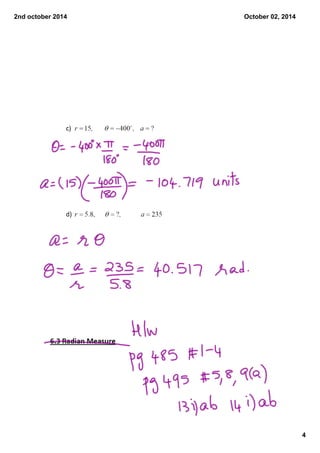 2nd october 2014 October 02, 2014
c) r = 15, θ = −400°, a = ?
θ = -400° × π/180° = -400π/180
a = (15)(-400π/180) = -104.719 units
d) r = 5.8, θ = ?, a = 235
a = r θ
θ = a/r = 235/5.8 = 40.517 rad.
H/w
6.3 Radian Measure
pg 485 #1-4
pg 495 #5,8,9(a)
13i)ab 14i)ab
4